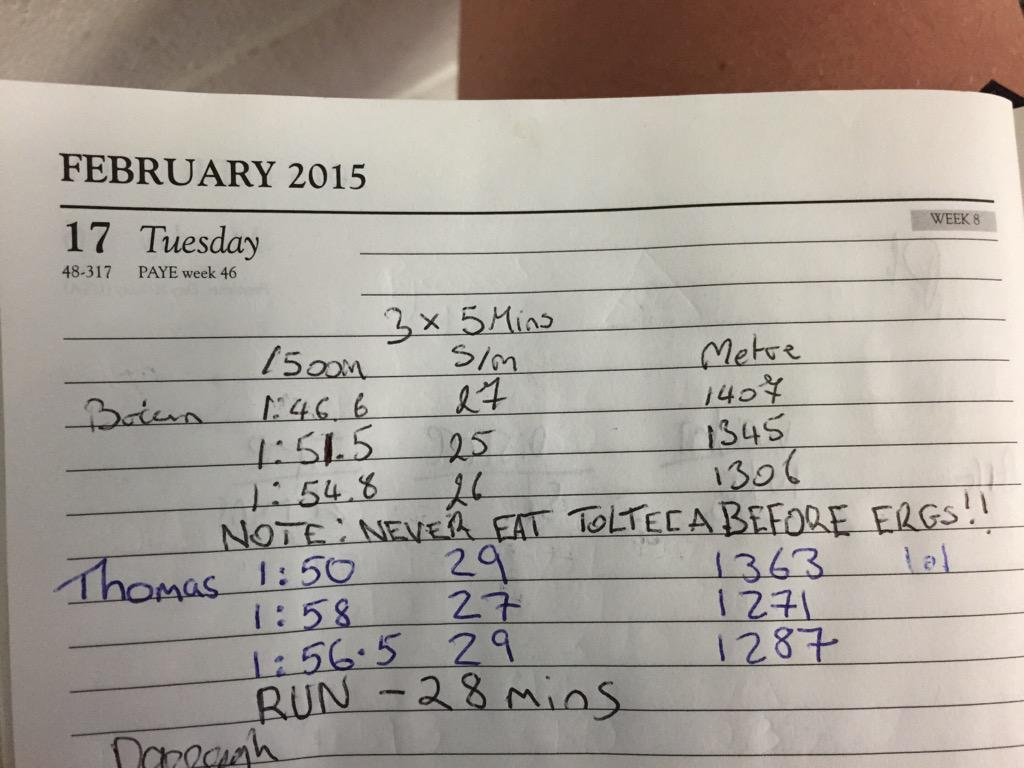 FEBRUARY 2015
WEEK 8
17 Tuesday
48-317 PAYE week 46
3 x 5 Mins
/500m S/m Metre
1:46.6 27 1407
1:51.5 25 1345
1:54.8 26 1306
NOTE: NEVER EAT TOLTECA BEFORE ERGS!!
Thomas 1:50 29 1363 lol
1:58 27 1271
1:56.5 29 1287
RUN - 28 mins
Darragh